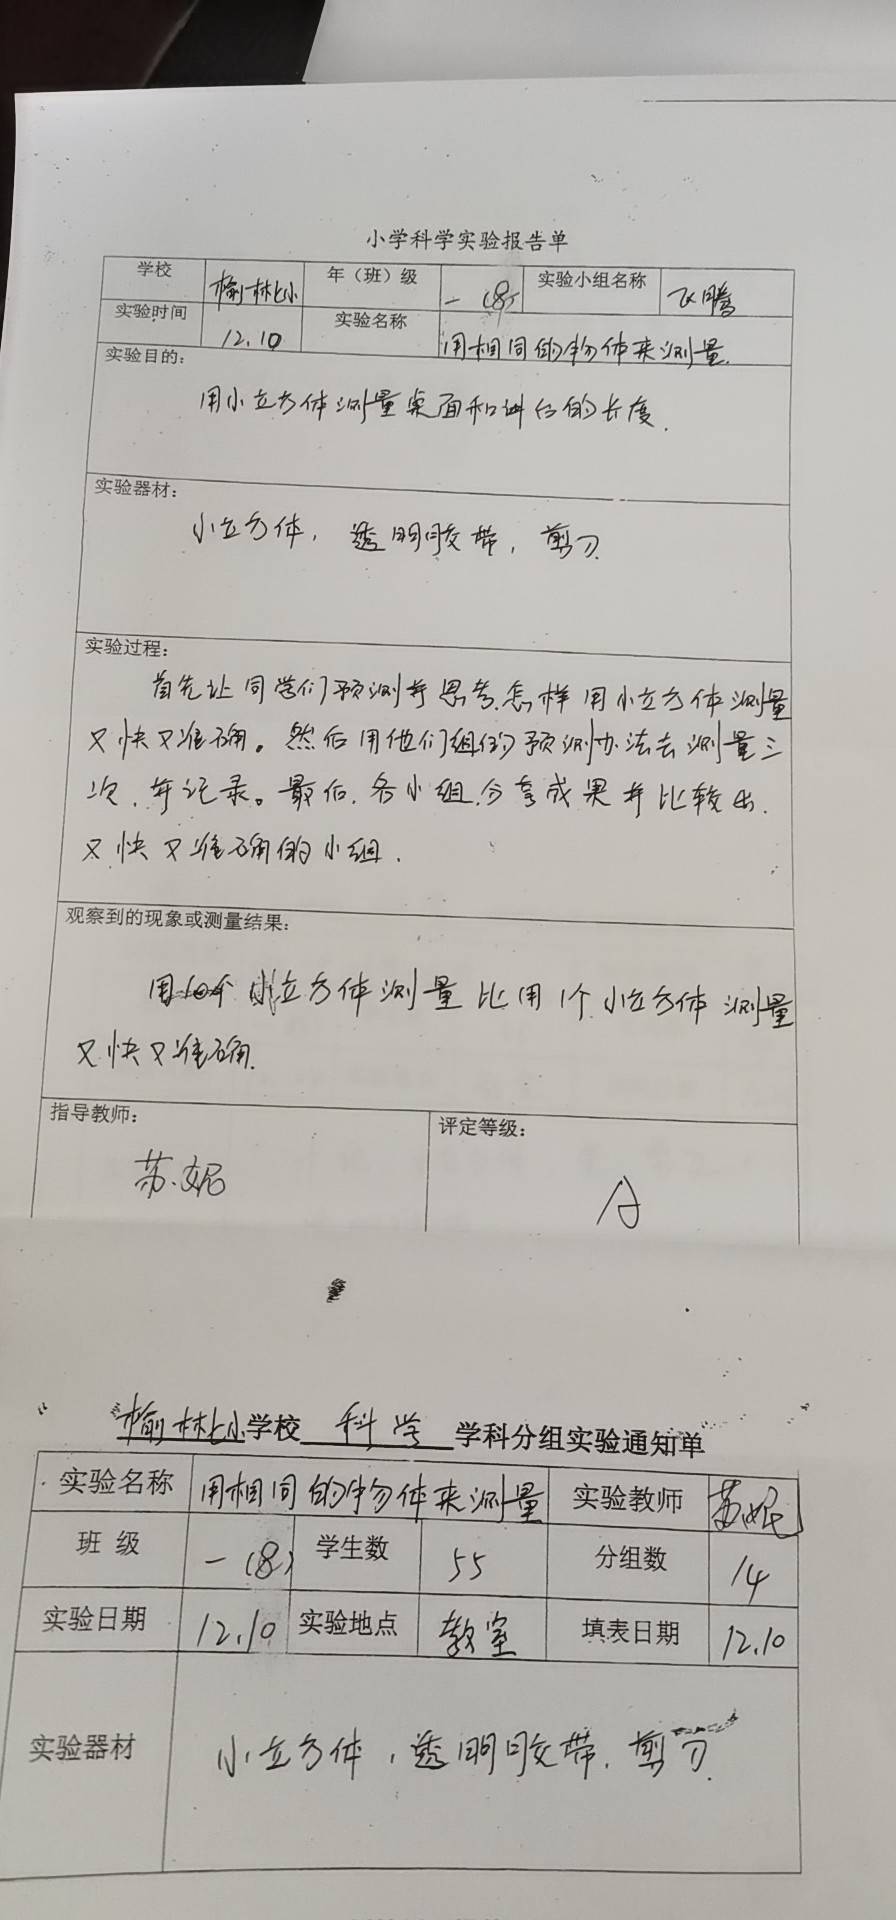 小学科学实验报告单
学校 榆林北小 年（班）级 一（8） 实验小组名称 飞腾
实验时间 12.10 实验名称 用相同的物体来测量
实验目的：
用小立方体测量桌面和讲台的长度.
实验器材：
小立方体，透明胶带，剪刀
实验过程：
首先让同学们预测并思考,怎样用小立方体测量
又快又准确。然后用他们组的预测办法去测量三
次，并记录。最后,各小组分享成果并比较出
又快又准确的小组.
观察到的现象或测量结果：
用10个小立方体测量比用1个小立方体测量
又快又准确.
指导教师： 评定等级：
苏妮 A
榆林北小学校 科学 学科分组实验通知单
实验名称 用相同的物体来测量 实验教师 苏妮
班级 一（8） 学生数 55 分组数 14
实验日期 12.10 实验地点 教室 填表日期 12.10
实验器材 小立方体，透明胶带，剪刀.